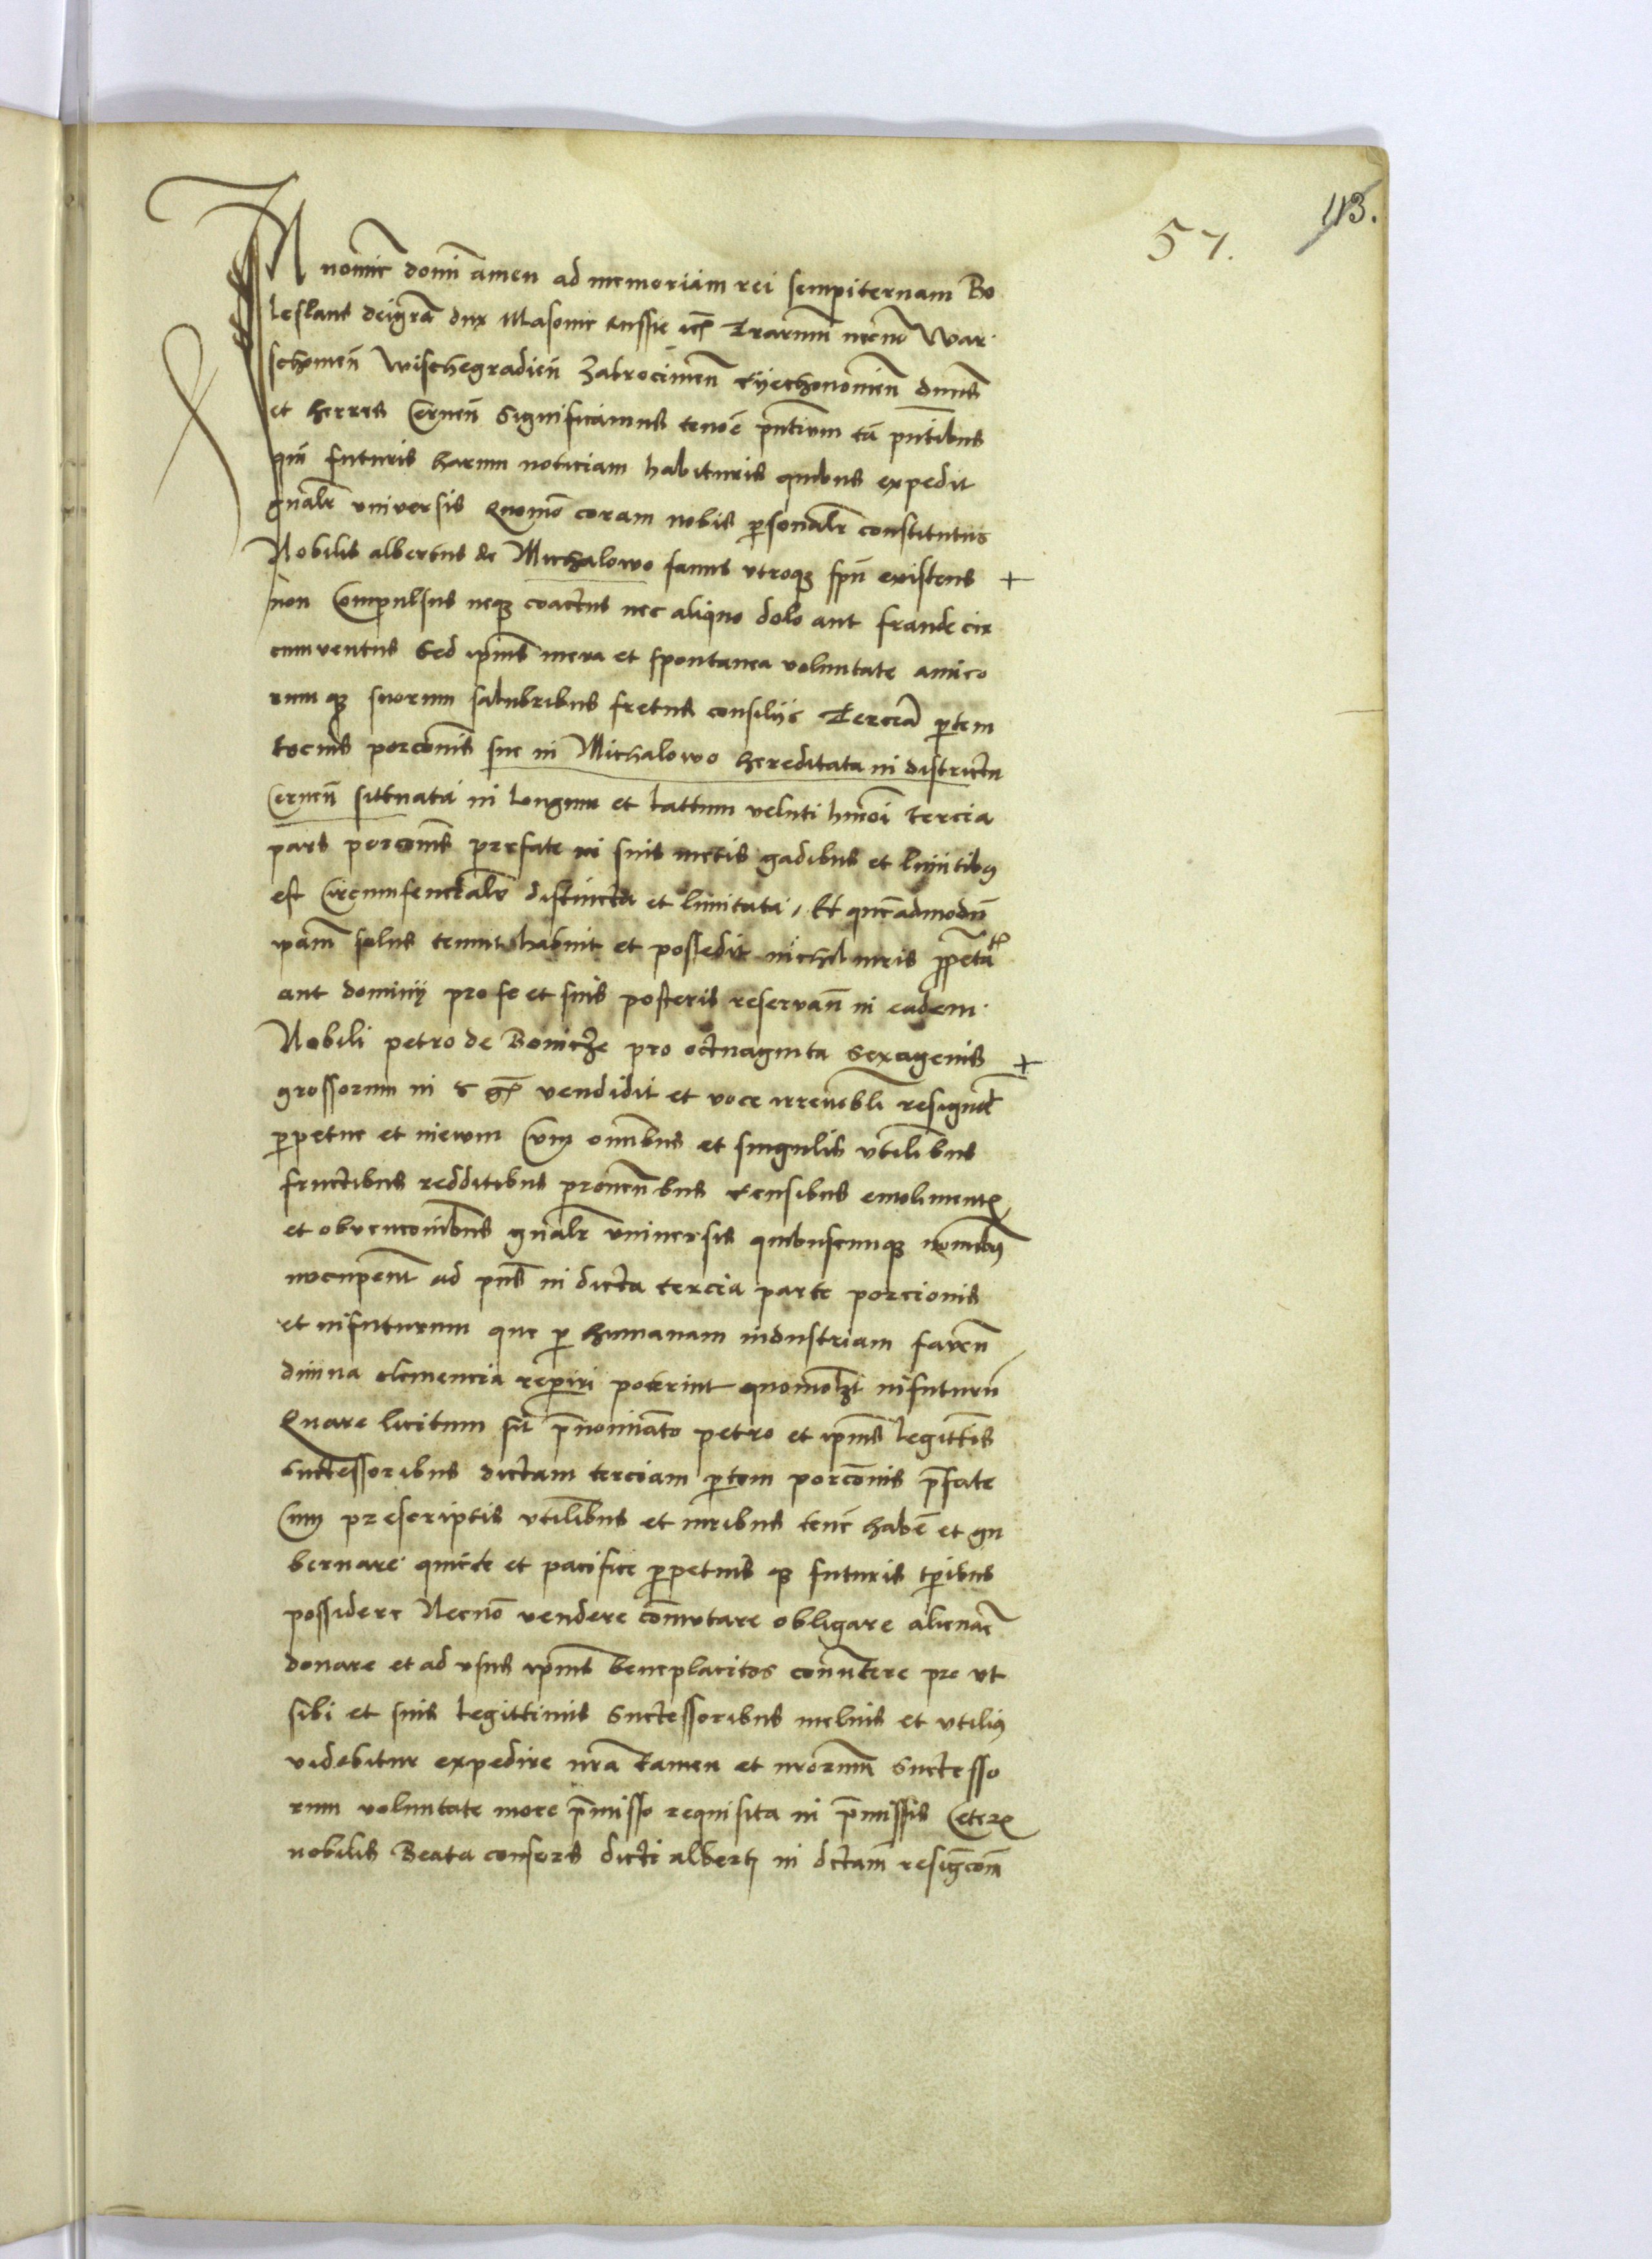 113.
57.
In nomīe domī amen ad memoriam rei sempiternam Bo
leslaus deigr̃a dux Masouie Russie etc̃ Trarum̃ necnō War
schouieñ Wischegradieñ Zakrocimeñ Cyechonouieñ dnũs
et heres Cerneñ Significamus tenoē pñtium tā pñtibus
qm̄ futuris harum noticiam habituris quibus expedit
gñalr̃ vniuersis Quomō coram nobis ꝑsonalr̃ constitutus
Nobilis albertus de Michalowo sanus vtroqꝫ hōie existens +
non Compulsus neqꝫ coactus nec aliquo dolo aut fraude cir
cumventus Sed ip̄ius mera et spontanea voluntate amico
rum qꝫ suorum salubribus fretus consilijs Terciā ꝑtem
tocius porcōnis sue in Michalowo hereditata in districtu
Cerneñ sittuatā in longum et lattum veluti hmōi tercia
pars porcōnis prefate in suis metis gadibus et limitibꝰ
est Circumferencialr̃ distincta et limitata, Et quē admodū
ipām solus tenuit habuit et possedit nichil iuris ꝓp̄etatꝭ
aut dominij pro se et suis posteris reservañ in eadem
Nobili petro de Bonicze pro octuaginta Sexagenis +
grossorum in s̃ gr̃ vendidit et voce irreuocbl̃i resignat̃
ꝑpetue et in ewum Cum omībus et singulis vtilībus
fructibus redditibus ꝓuenieñbus censibus emolimentꝭ
et obvencōnibus gñalr̃ vniuersis quibuscumqꝫ nomībꝰ
nūcupentr̃ ad pñs in dicta tercia parte porcionis
et infuturum que ꝑ humanam industriam faueñ
diuina clemencia reperiri poterint quomolꝫt infuturū
Quare licitum sit p̄nomiāto petro et ip̄ius legittīs
Successoribus dictam terciam ꝑtem porcōnis p̄fate
Cum prescriptis vtilībus et iuribus tenē habē et gu
bernare quiete et pacifice ꝑpetuis qꝫ futuris tꝑibus
possidere Necnō vendere cōmutare obligare alienaē
donare et ad vsus ip̄ius beneplacitos conūtere pro vt
sibi et suis legittimis Successoribus melius et vtiliꝰ
videbitur expedire nr̃a tamen et nr̃orum̃ Successo
rum voluntate more p̄misso requisita in p̄missis Ceterꝭ
nobilis Beata consors dicti albertj in dc̄tam resigᵃcōm̄